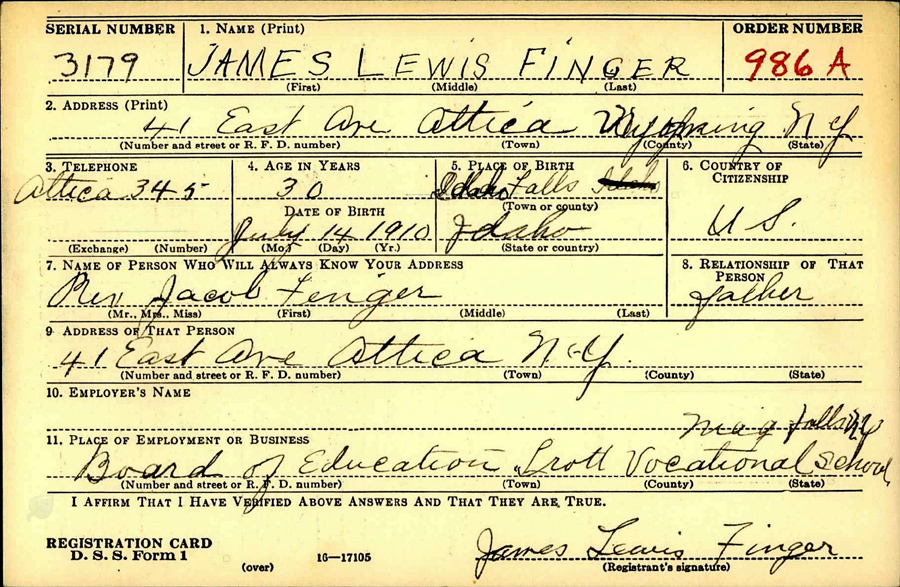 SERIAL NUMBER 1. NAME (Print) ORDER NUMBER
3179 JAMES LEWIS FINGER 986 A
(First) (Middle) (Last)
2. ADDRESS (Print)
41 East Ave Attica Wyoming N Y
(Number and street or R. F. D. number) (Town) (County) (State)
3. TELEPHONE 4. AGE IN YEARS 5. PLACE OF BIRTH 6. COUNTRY OF CITIZENSHIP
Attica 345 30 Idaho Falls
(Town or county)
DATE OF BIRTH U S.
July 14 1910 Idaho
(Exchange) (Number) (Mo.) (Day) (Yr.) (State or country)
7. NAME OF PERSON WHO WILL ALWAYS KNOW YOUR ADDRESS 8. RELATIONSHIP OF THAT PERSON
Rev Jacob Finger father
(Mr., Mrs., Miss) (First) (Middle) (Last)
9 ADDRESS OF THAT PERSON
41 East Ave Attica N-Y.
(Number and street or R. F. D. number) (Town) (County) (State)
10. EMPLOYER'S NAME
Niag Falls NY
11. PLACE OF EMPLOYMENT OR BUSINESS
Board of Education Trott Vocational School
(Number and street or R. F. D. number) (Town) (County) (State)
I AFFIRM THAT I HAVE VERIFIED ABOVE ANSWERS AND THAT THEY ARE TRUE.
REGISTRATION CARD
D. S. S. Form 1 16—17105 James Lewis Finger
(over) (Registrant's signature)